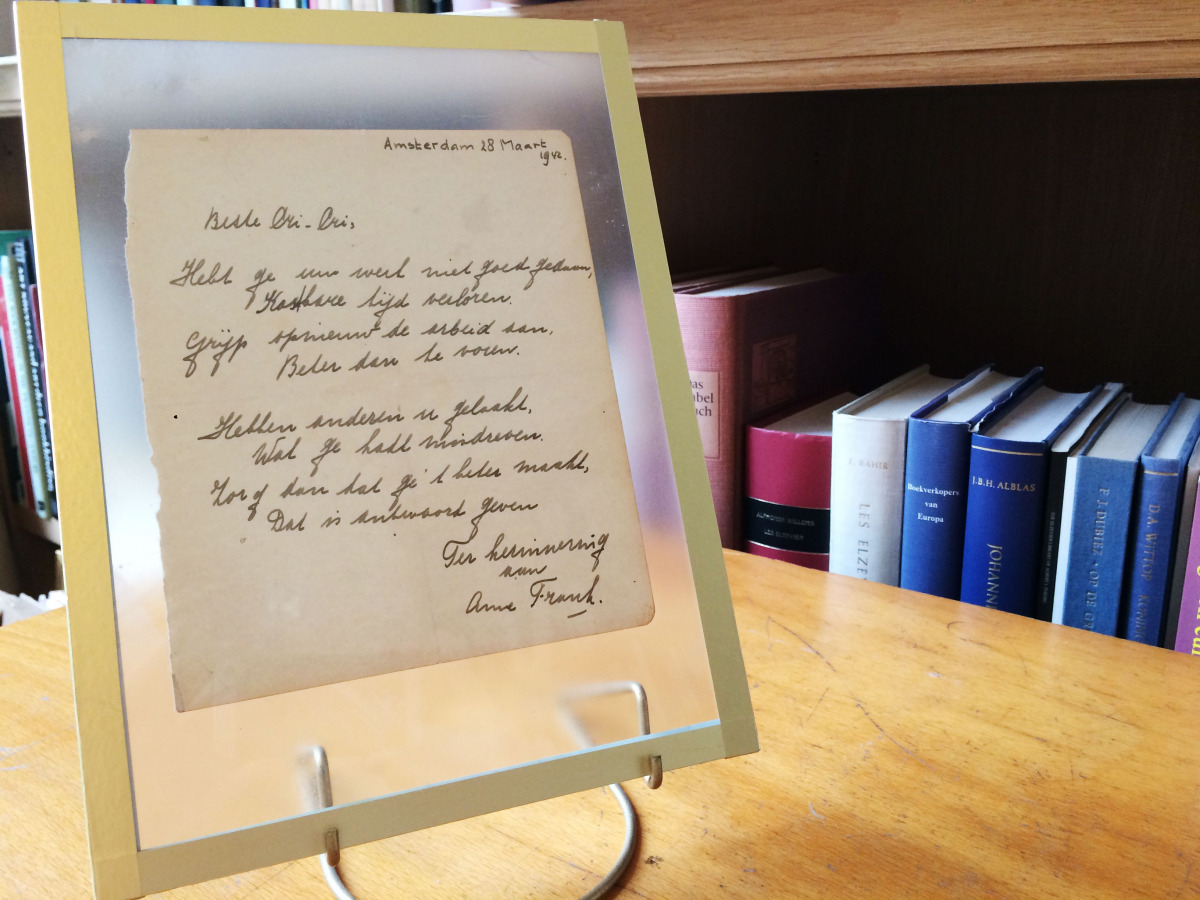 Amsterdam 28 Maart
1942.
Beste Cri-Cri,
Hebt ge uw werk niet goed gedaan,
Kostbare tijd verloren.
Grijp opnieuw de arbeid aan,
Beter dan te voren.
Hebben anderen u gelaakt,
Wat ge hadt misdreven.
Zorg dan dat ge 't beter maakt,
Dat is antwoord geven
Ter herinnering
aan
Anne Frank.
LES ELZE
Boekverkopers
van
Europa
J.B.H. ALBLAS
JOHANN
D.A. WITTOP KONIN